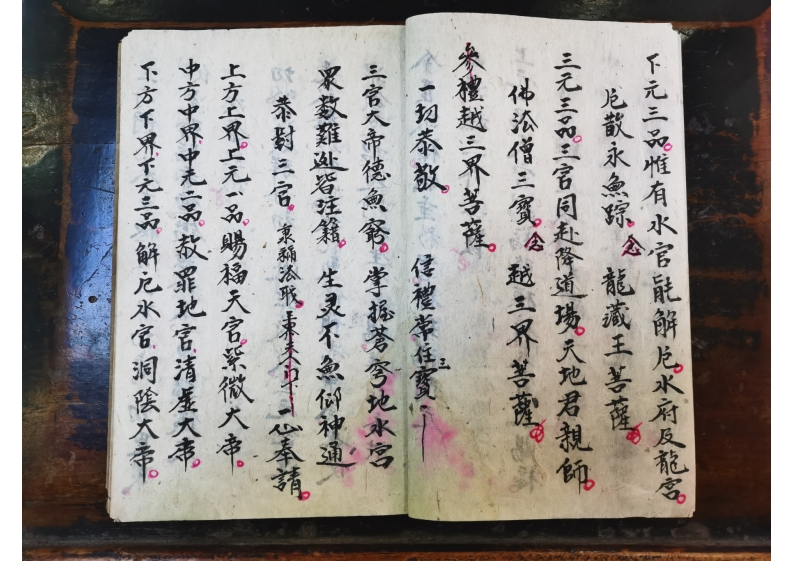 下元三品惟有水官能解厄水府及龍宮
厄散永魚踪念 龍藏王菩薩
三元三品三官同赴降道場天地君親師
佛法僧三寶念 越三界菩薩
參禮越三界菩薩
一切恭敬 信禮常住三寶
三官大帝德魚窮 掌握蒼穹地水宮
眾数難逃皆注籍 生灵不魚仰神通
恭對三官 稱法職 一心奉請
上方上界上元一品賜福天官紫微大帝
中方中界中元二品赦罪地官清虛大帝
下方下界下元三品解厄水官洞陰大帝